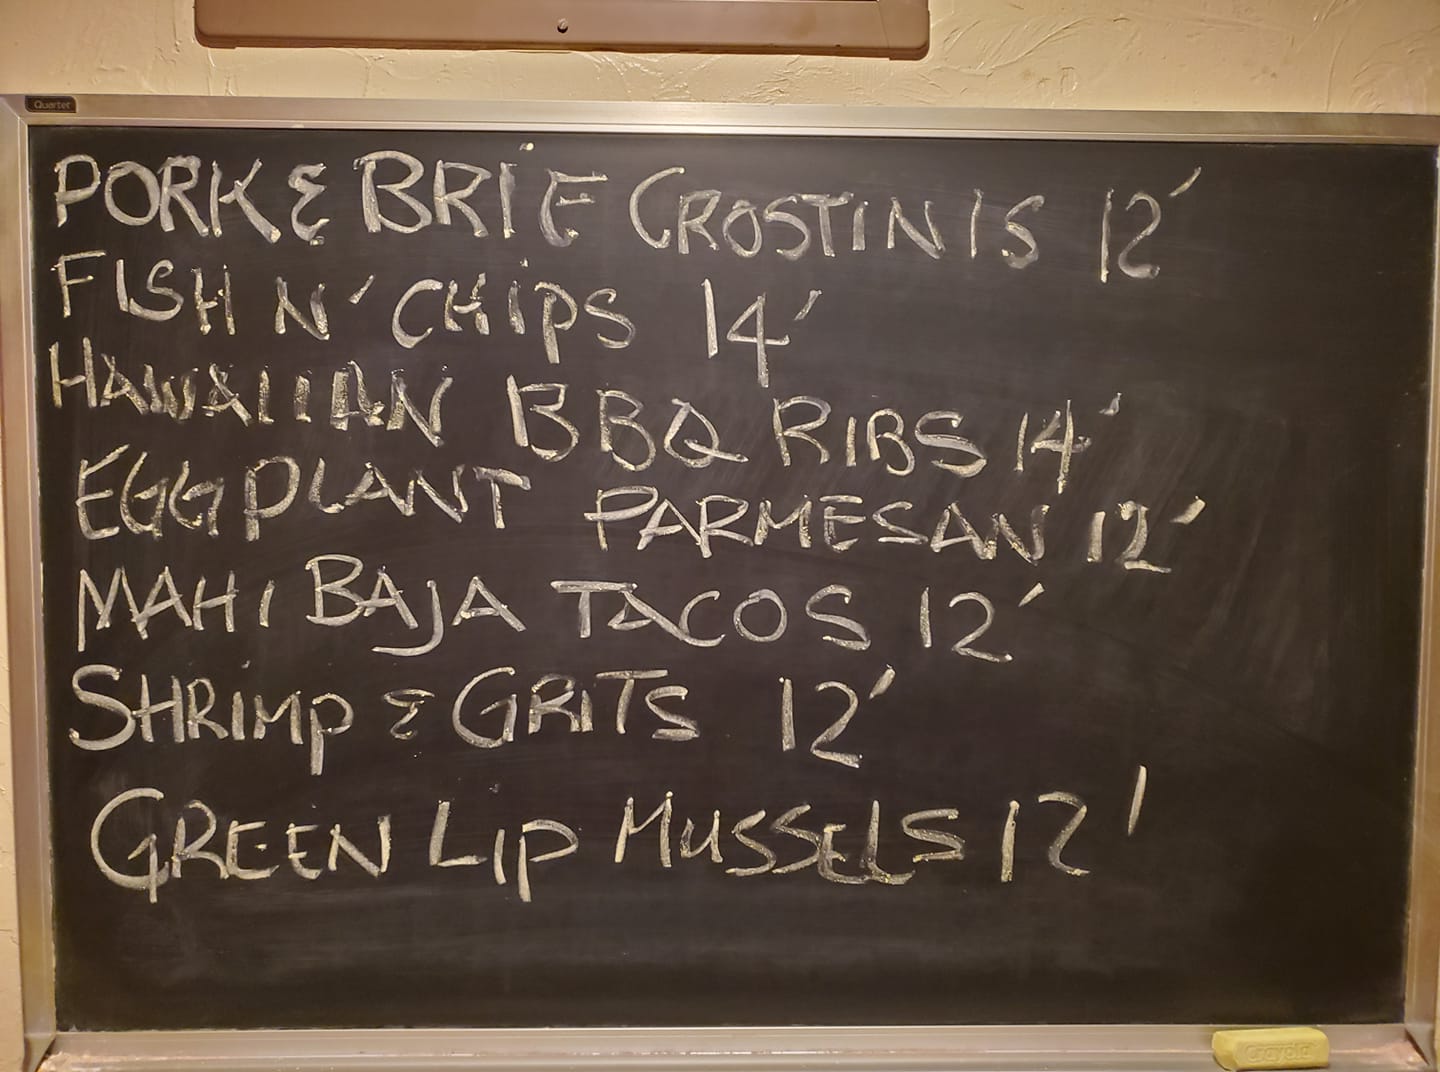 Quartet
PORK & BRIE CROSTINIS 12'
FISH N' CHIPS 14'
HAWAIIAN BBQ RIBS 14'
EGGPLANT PARMESAN 12'
MAHI BAJA TACOS 12'
SHRIMP & GRITS 12'
GREEN LIP MUSSELS 12'
Crayola